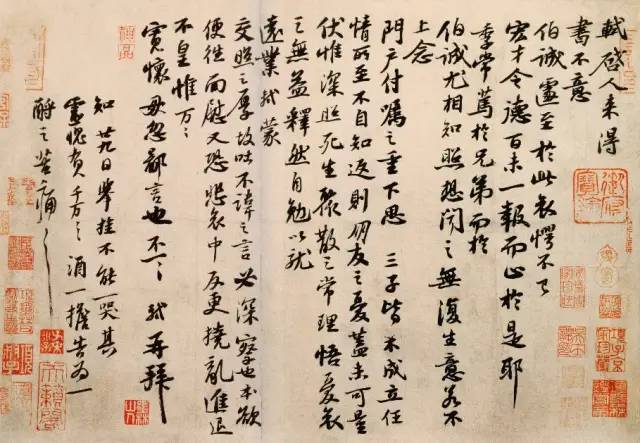 軾啓人来得
書不意
伯誠遽至於此哀愕不已
宏才令德百未一報而止於是耶
季常篤於兄弟而於
伯誠尤相知照想聞之無復生意若不
上念
門戶付囑之重下思三子皆不成立任
情所至不自知返則朋友之憂蓋未可量
伏惟深照死生聚散之常理悟憂哀
之無益釋然自勉以就
遠業軾蒙
交照之厚故吐不諱之言必深察也本欲
便往面慰又恐悲哀中反更撓亂進退
不皇惟万〻
寬懷毋忽鄙言也不一〻軾再拜
知廿九日舉挂不能一哭其
靈愧負千万〻酒一擔告為一
酹之苦痛〻〻